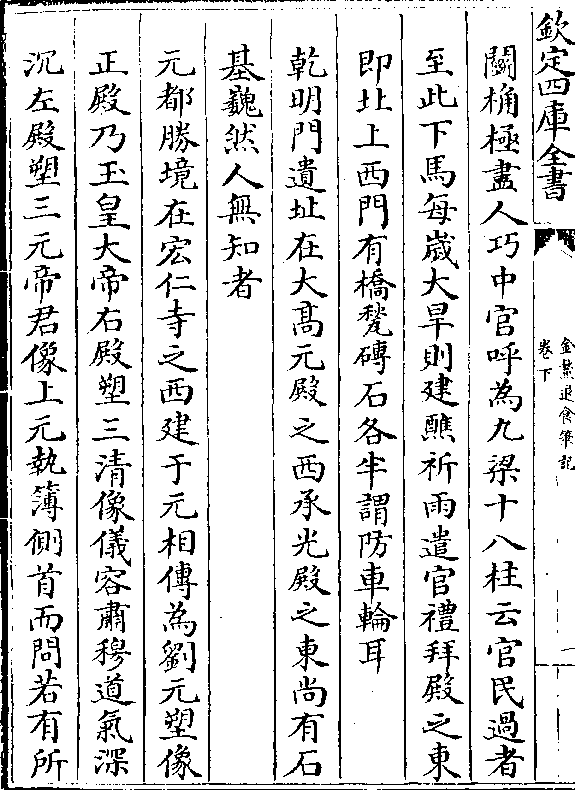 欽定四庫全書
金鰲退食筆記
卷下
闌桷極盡人巧中官呼為九梁十八柱云官民過者
至此下馬每歲大旱則建醮祈雨遣官禮拜殿之東
即北上西門有橋甃磚石各半謂防車輪耳
乾明門遺址在大髙元殿之西承光殿之東尚有石
基巍然人無知者
元都勝境在宏仁寺之西建于元相傳為劉元塑像
正殿乃玉皇大帝右殿塑三清像儀容肅穆道氣深
沉左殿塑三元帝君像上元執簿側首而問若有所